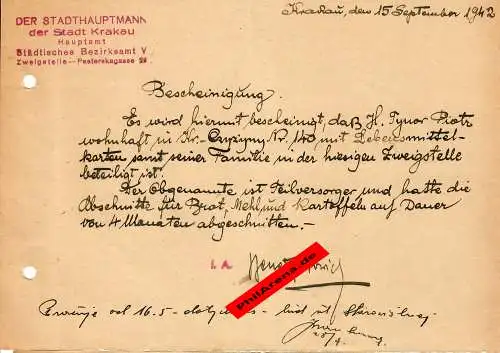 DER STADTHAUPTMANN
der Stadt Krakau
Hauptamt
Städtisches Bezirksamt V
Zweigstelle — Pasterskagasse 29
Krakau, den 15 September 1942
Bescheinigung.
Es wird hiermit bescheinigt, daß H. Tynor Piotr
wohnhaft in Kr.- Nr. 140 mit Lebensmittel-
karten samt seiner Familie in der hiesigen Zweigstelle
beteiligt ist.
Der Obgenannte ist Teilversorger und hatte die
Abschnitte für Brot, Mehl und Kartoffeln auf Dauer
von 4 Monaten abgeschnitten.-
i.A.
PhilArena.de
od 16.5 -